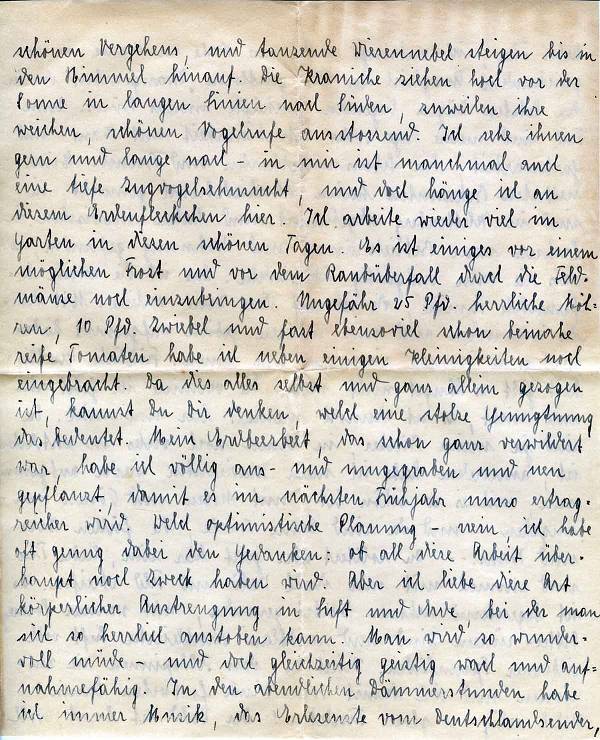 schönen Vergehens, und tanzende Wiesennebel steigen bis in
den Himmel hinauf. Die Kraniche ziehen hoch vor der
Sonne in langen Linien nach Süden, zuweilen ihre
weichen, schönen Vogelrufe ausstossend. Ich sehe ihnen
gern und lange nach - in mir ist manchmal auch
eine tiefe Zugvogelsehnsucht, und doch hänge ich an
diesem Erdenfleckchen hier. Ich arbeite wieder viel im
Garten in diesen schönen Tagen. Es ist einiges vor einem
möglichen Frost und vor dem Raubüberfall durch die Feld-
mäuse noch einzubringen. Ungefähr 25 Pfd. herrliche Möh-
ren, 10 Pfd. Zwiebel und fast ebensoviel schon beinahe
reife Tomaten habe ich neben einigen Kleinigkeiten noch
eingebracht. Da dies alles selbst und ganz allein gezogen
ist, kannst Du Dir denken, welch eine stolze Genugtuung
das bedeutet. Mein Erdbeerbeet, das schon ganz verwildert
war, habe ich völlig aus- und umgegraben und neu
gepflanzt, damit es im nächsten Frühjahr umso ertrag-
reicher wird. Welch optimistische Planung - nein, ich habe
oft genug dabei den Gedanken: ob all diese Arbeit über-
haupt noch Zweck haben wird. Aber ich liebe diese Art
körperlicher Anstrengung in Luft und Erde, bei der man
sich so herrlich austoben kann. Man wird so wunder-
voll müde - und doch gleichzeitig geistig wach und auf-
nahmefähig. In den abendlichen Dämmerstunden habe
ich immer Musik, das Erlesenste vom Deutschlandsender,